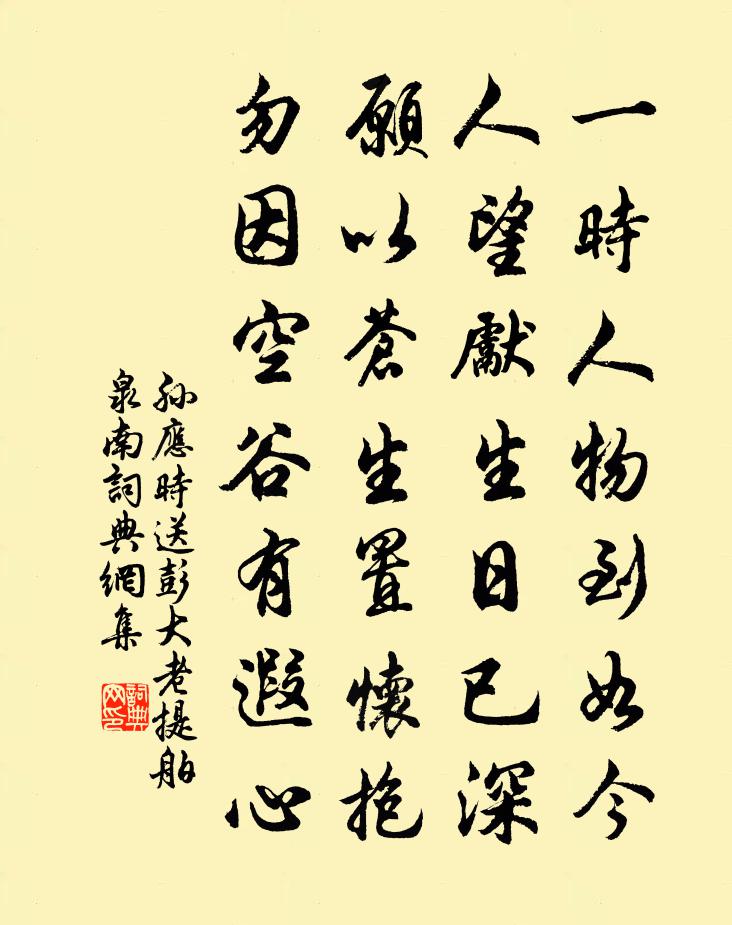 一時人物到如今
人望獻生日已深
願以蒼生置懷抱
勿因空谷有遐心
孫應時送彭大老提舶
泉南詞典網集
詞典
网印